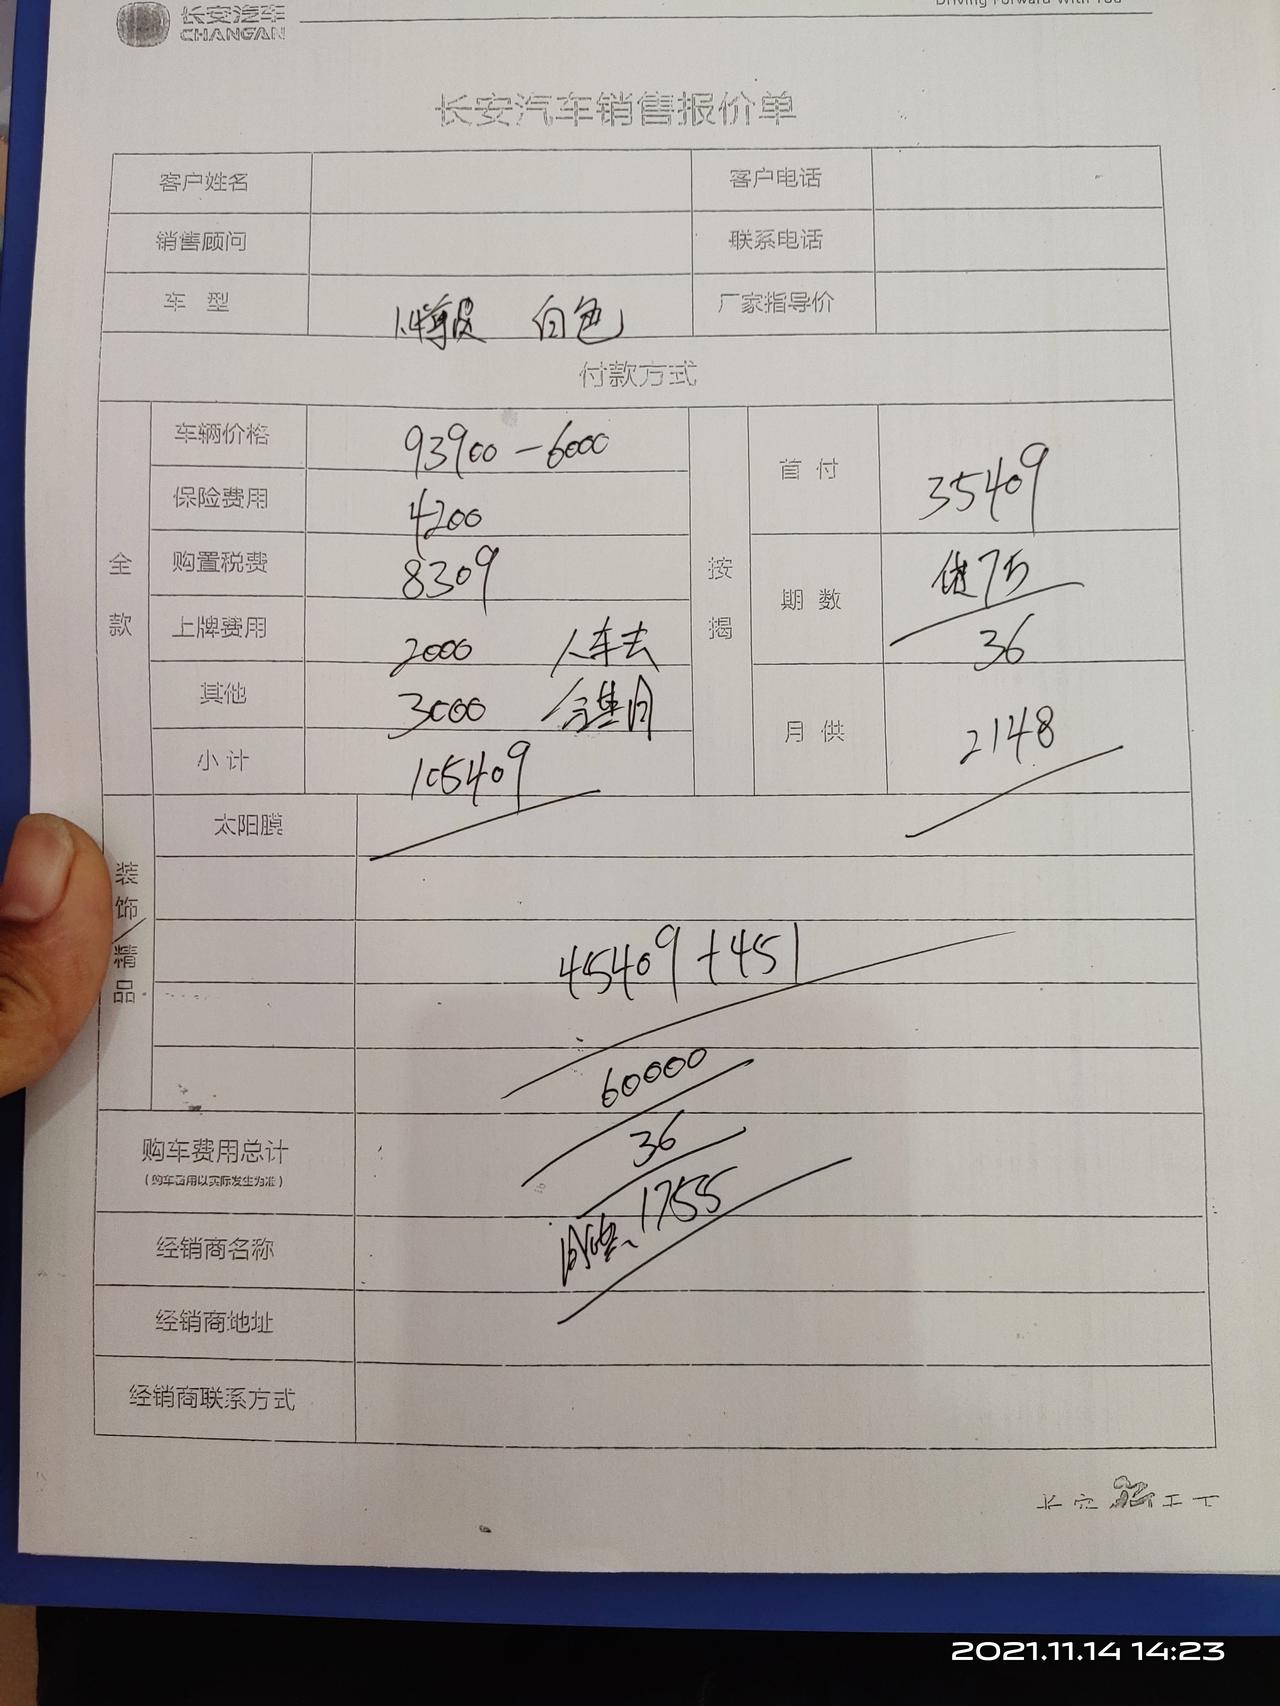 长安汽车
CHANGAN
Driving Forward With You
长安汽车销售报价单
客户姓名 客户电话
销售顾问 联系电话
车 型 1.4尊享 白色 厂家指导价
付款方式
全款 车辆价格 93900-6000
保险费用 4200
购置税费 8309
上牌费用 2000 人车去
其他 3000
小计 105409
按揭 首付 35409
期数 贷7万
36
月供 2148
装饰/精品 太阳膜
45409+451
60000
36
1755
购车费用总计
(购车费用以实际发生为准)
经销商名称
经销商地址
经销商联系方式
2021.11.14 14:23